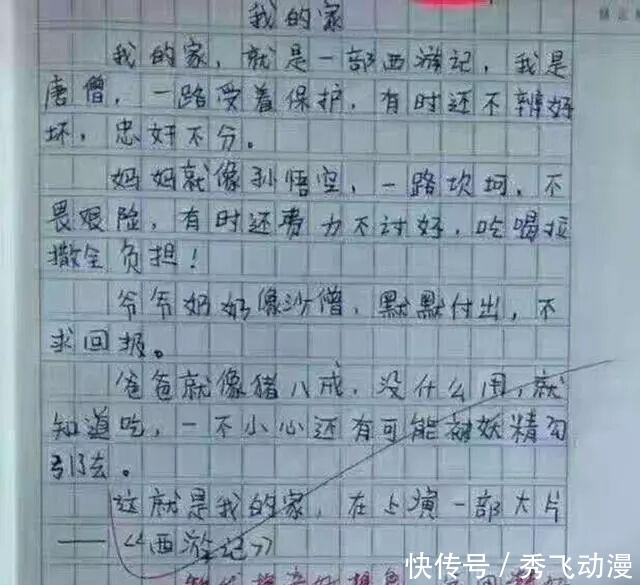 我的家
我的家，就是一部西游记，我是
唐僧，一路受着保护，有时还不辨好
坏，忠奸不分。
妈妈就像孙悟空，一路坎坷，不
畏艰险，有时还费力不讨好，吃喝拉
撒全负担！
爷爷奶奶像沙僧，默默付出，不
求回报。
爸爸就像猪八戒，没什么用，就
知道吃，一不小心还有可能被妖精勾
引去。
这就是我的家，在上演一部大片
——《西游记》
快传号／秀飞动漫